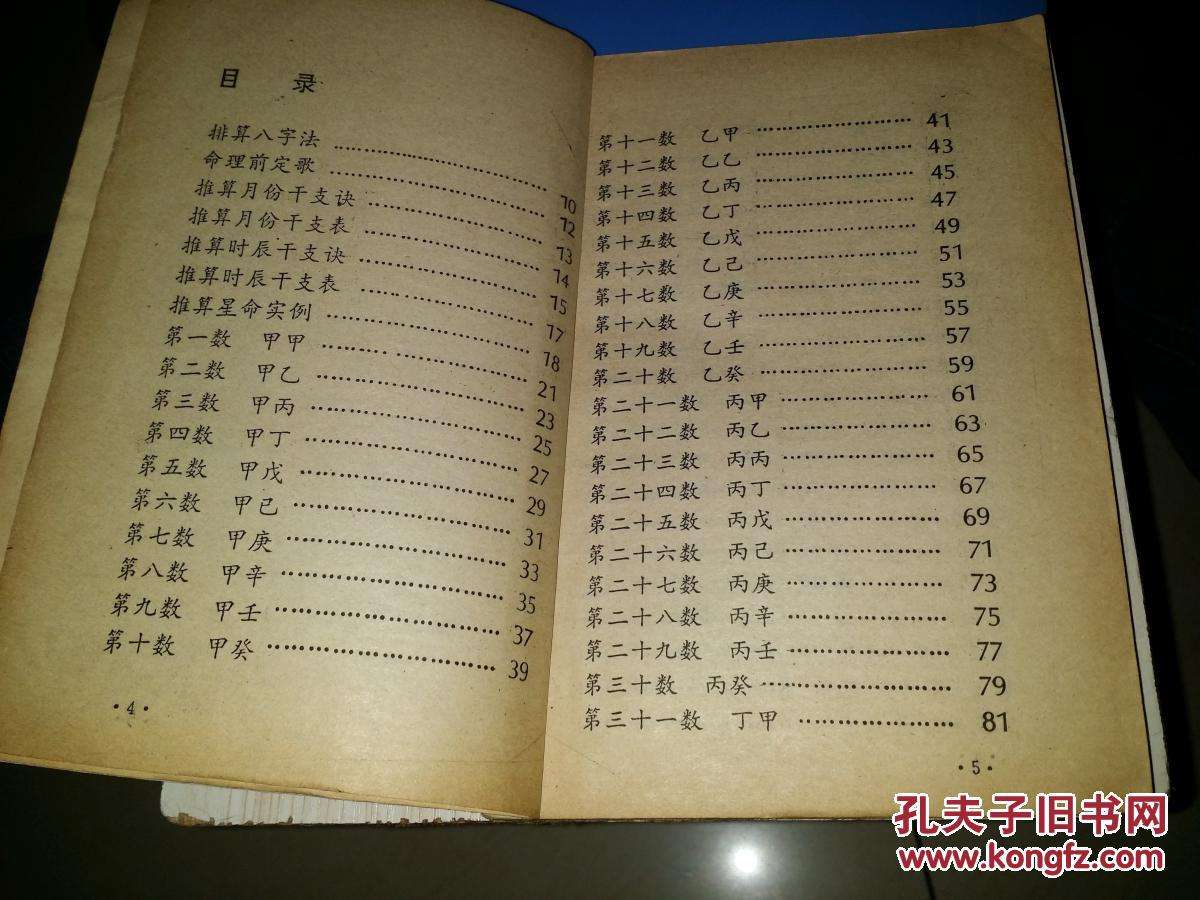 目 录
排算八字法 …………………… 10
命理前定歌 …………………… 12
推算月份干支诀 …………………… 13
推算月份干支表 …………………… 14
推算时辰干支诀 …………………… 15
推算时辰干支表 …………………… 17
推算星命实例 …………………… 18
第一数 甲甲 …………………… 21
第二数 甲乙 …………………… 23
第三数 甲丙 …………………… 25
第四数 甲丁 …………………… 27
第五数 甲戊 …………………… 29
第六数 甲己 …………………… 31
第七数 甲庚 …………………… 33
第八数 甲辛 …………………… 35
第九数 甲壬 …………………… 37
第十数 甲癸 …………………… 39
·4·
第十一数 乙甲 …………………… 41
第十二数 乙乙 …………………… 43
第十三数 乙丙 …………………… 45
第十四数 乙丁 …………………… 47
第十五数 乙戊 …………………… 49
第十六数 乙己 …………………… 51
第十七数 乙庚 …………………… 53
第十八数 乙辛 …………………… 55
第十九数 乙壬 …………………… 57
第二十数 乙癸 …………………… 59
第二十一数 丙甲 …………………… 61
第二十二数 丙乙 …………………… 63
第二十三数 丙丙 …………………… 65
第二十四数 丙丁 …………………… 67
第二十五数 丙戊 …………………… 69
第二十六数 丙己 …………………… 71
第二十七数 丙庚 …………………… 73
第二十八数 丙辛 …………………… 75
第二十九数 丙壬 …………………… 77
第三十数 丙癸 …………………… 79
第三十一数 丁甲 …………………… 81
·5·
孔夫子旧书网
www.kongfz.com